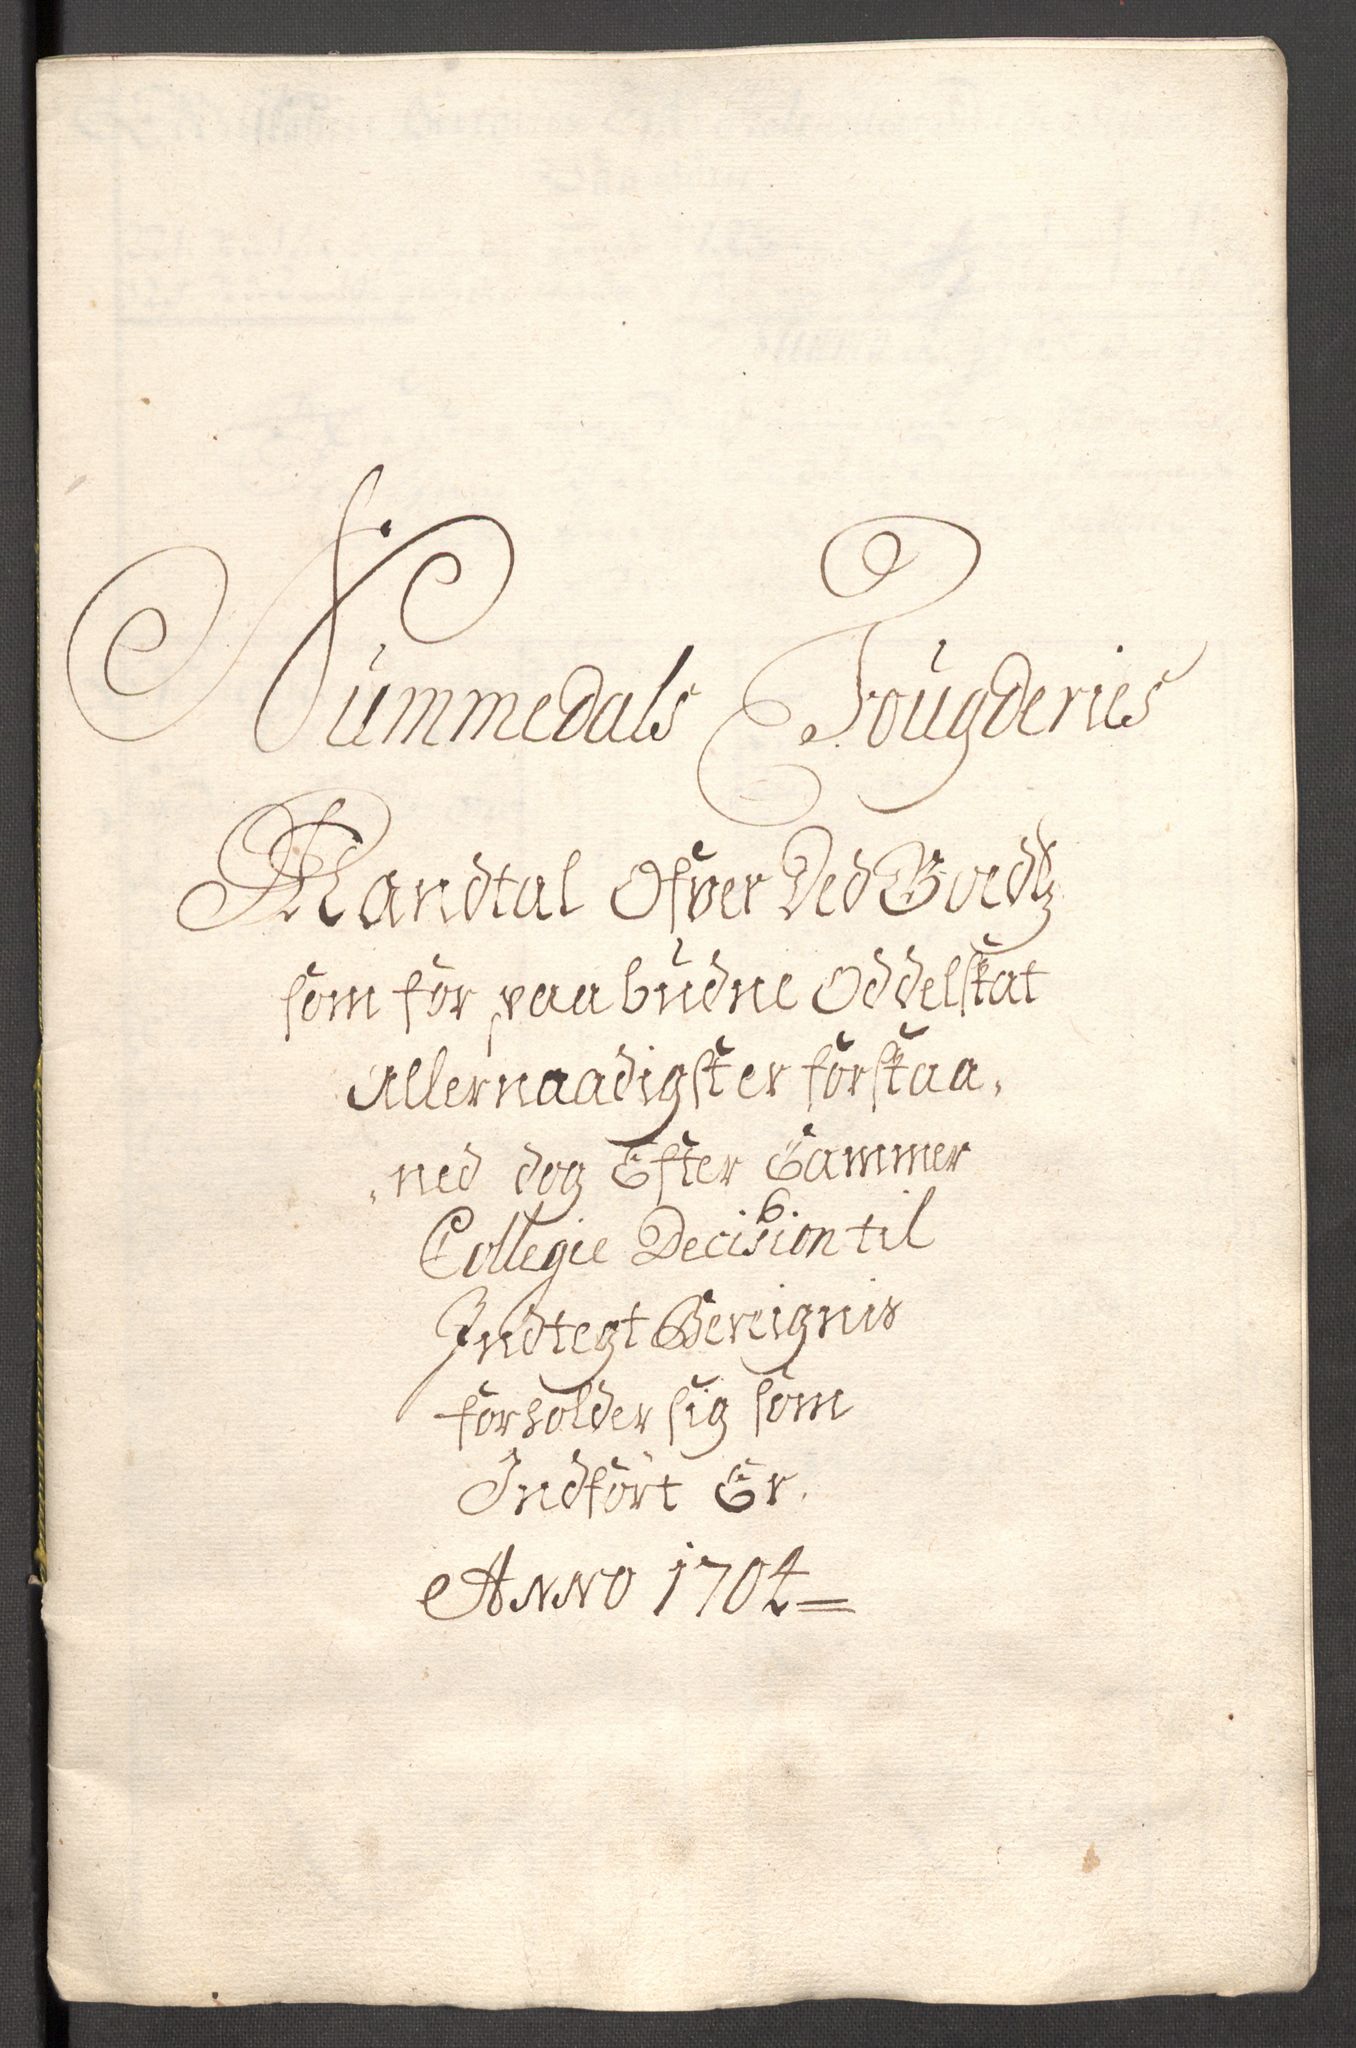 Nummedals Fougderies
Mandtal Ofver Ded Goedtz
som for paabudne Oddelskat
Allernaadigst er forskaa,
,ned dog Efter Cammer
Collegie Decision til
Indtegt Bereignis
forholder sig som
Indfört Er.
Anno 1704